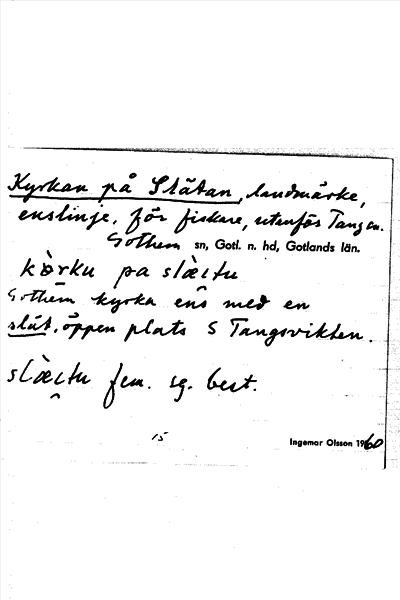 Kyrkan på Slätan, landmärke,
enslinje, för fiskare, utanför Tangen.
Gothem sn, Gotl. n. hd, Gotlands län.
kòrku pa slàetu
Gothem kyrka ens med en
slät, öppen plats S Tangsvikten.
slàetu fem. sg. best.
15
Ingemar Olsson 1960